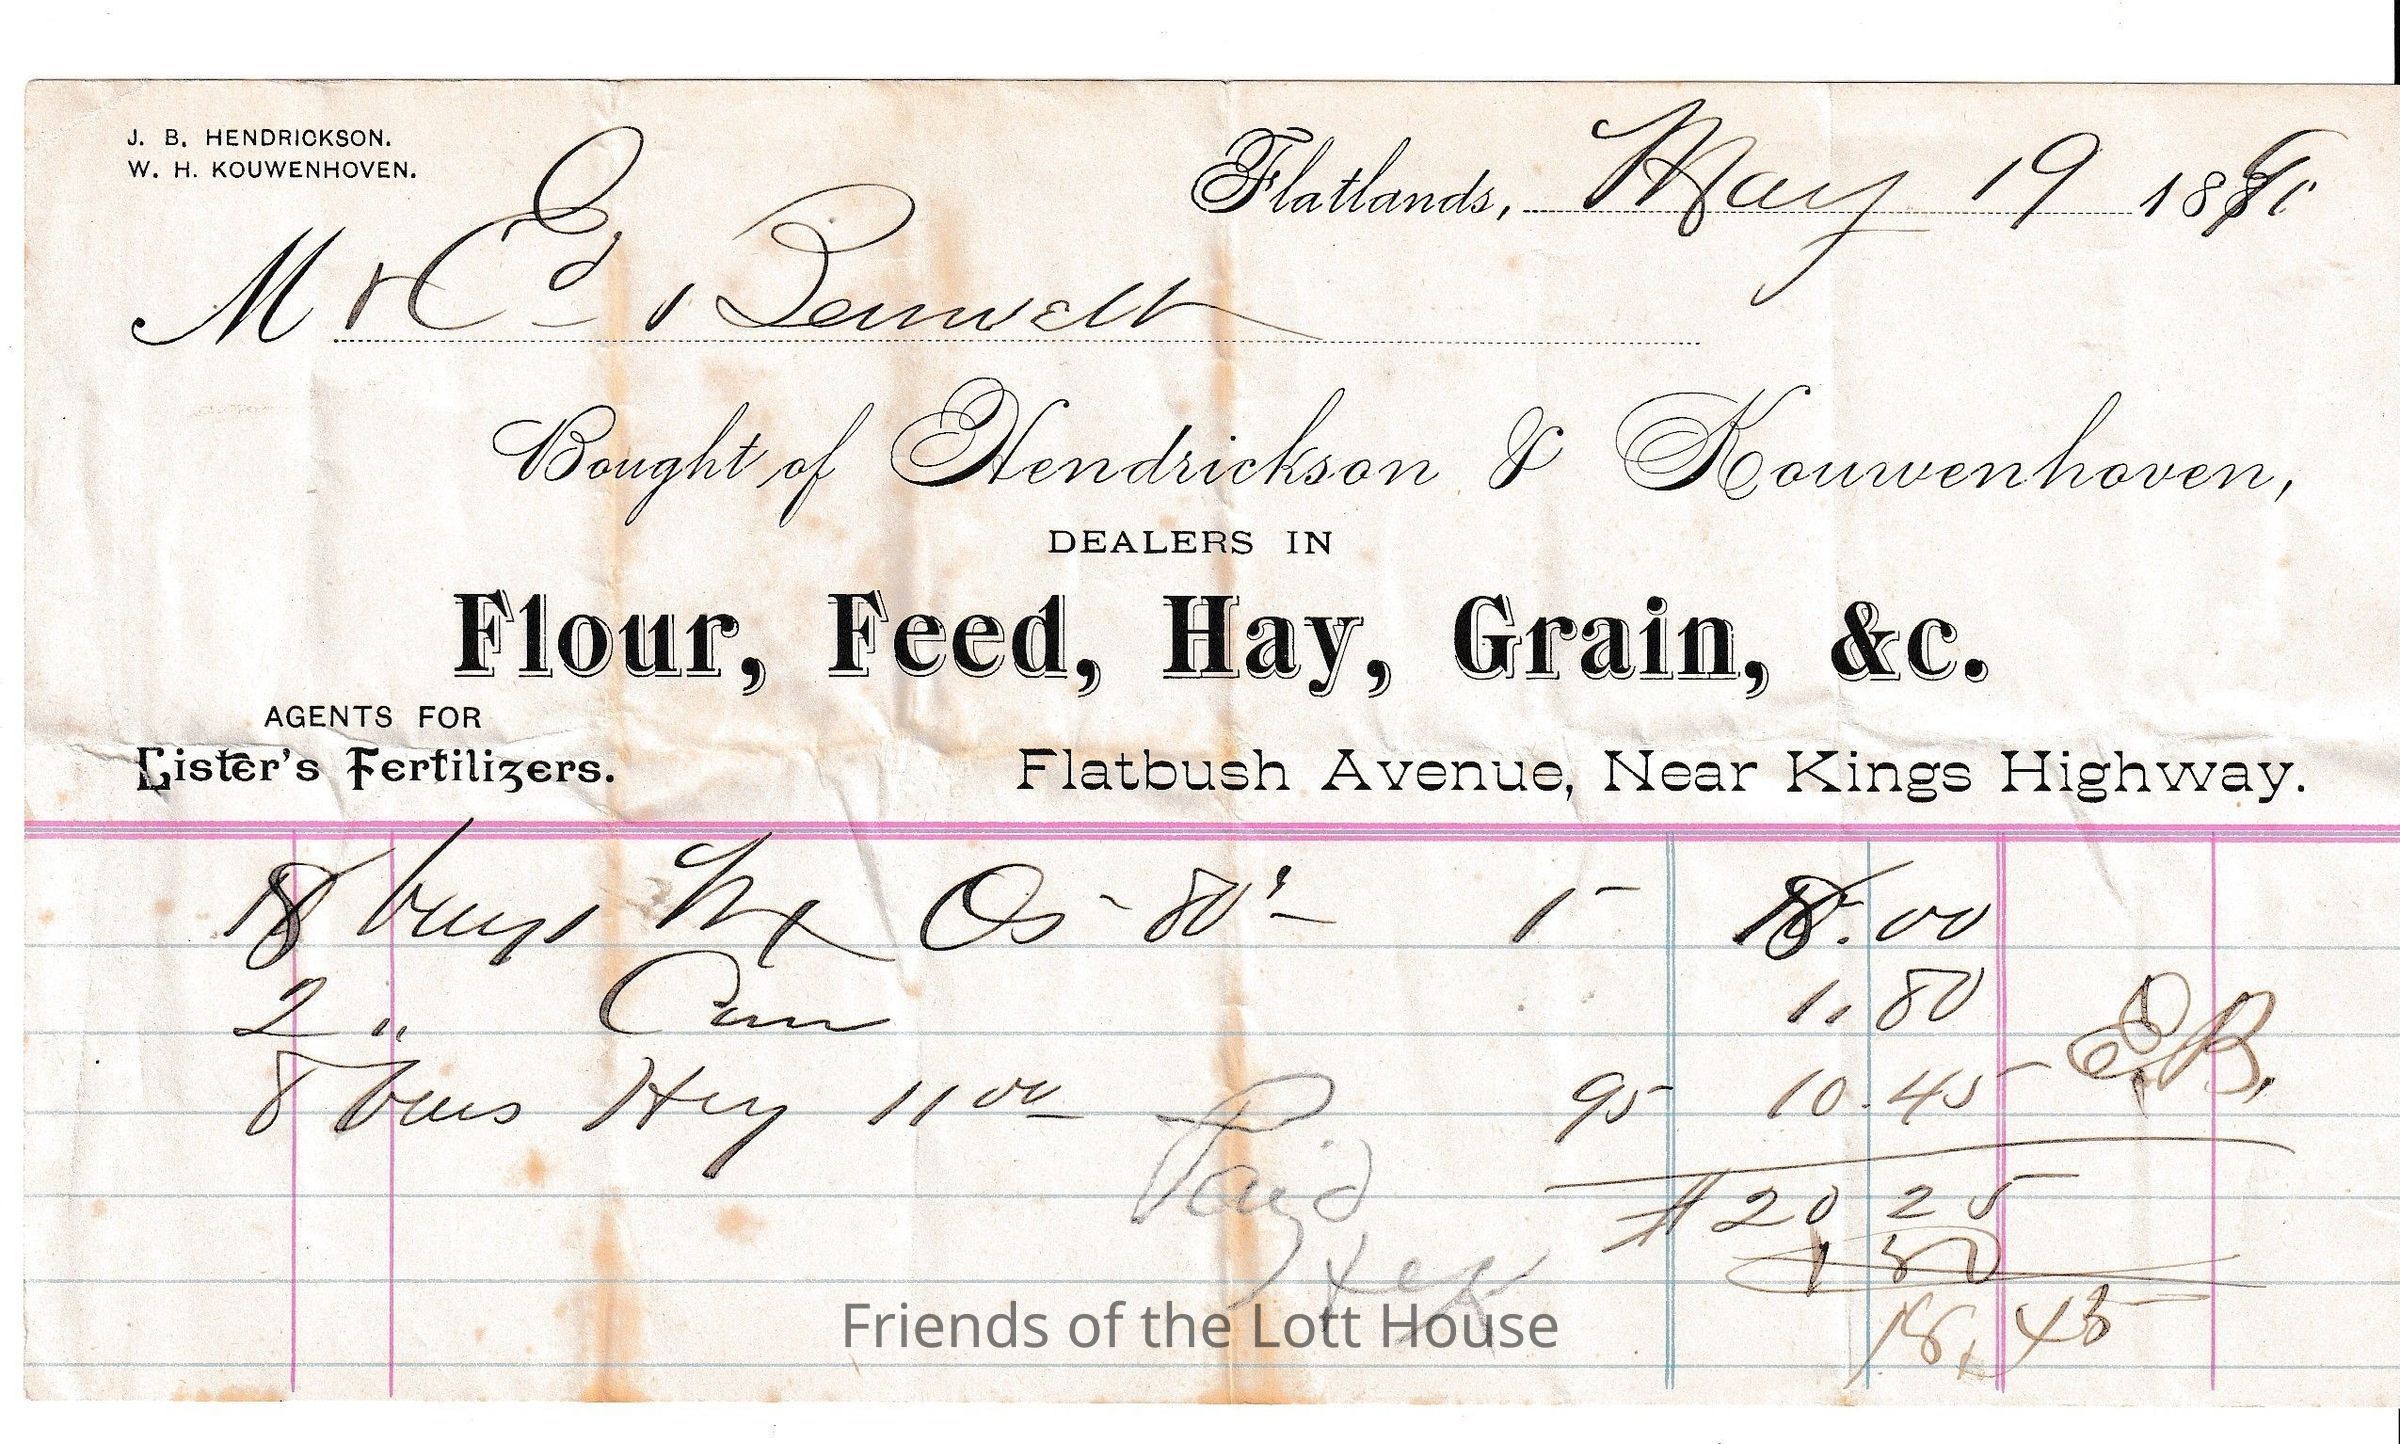 J. B. HENDRICKSON.
W. H. KOUWENHOVEN.
Flatlands, May 19 1891
Mr Ed Bennett
Bought of Hendrickson & Kouwenhoven,
DEALERS IN
Flour, Feed, Hay, Grain, &c.
AGENTS FOR
Lister's Fertilizers.
Flatbush Avenue, Near Kings Highway.
8 bags Mx Os - 80's - 1- 8.00
2 " 1.80
8 Hay 11 00 95 10.45 E.B.
Paid
$20 25
1 80
18.45
Friends of the Lott House